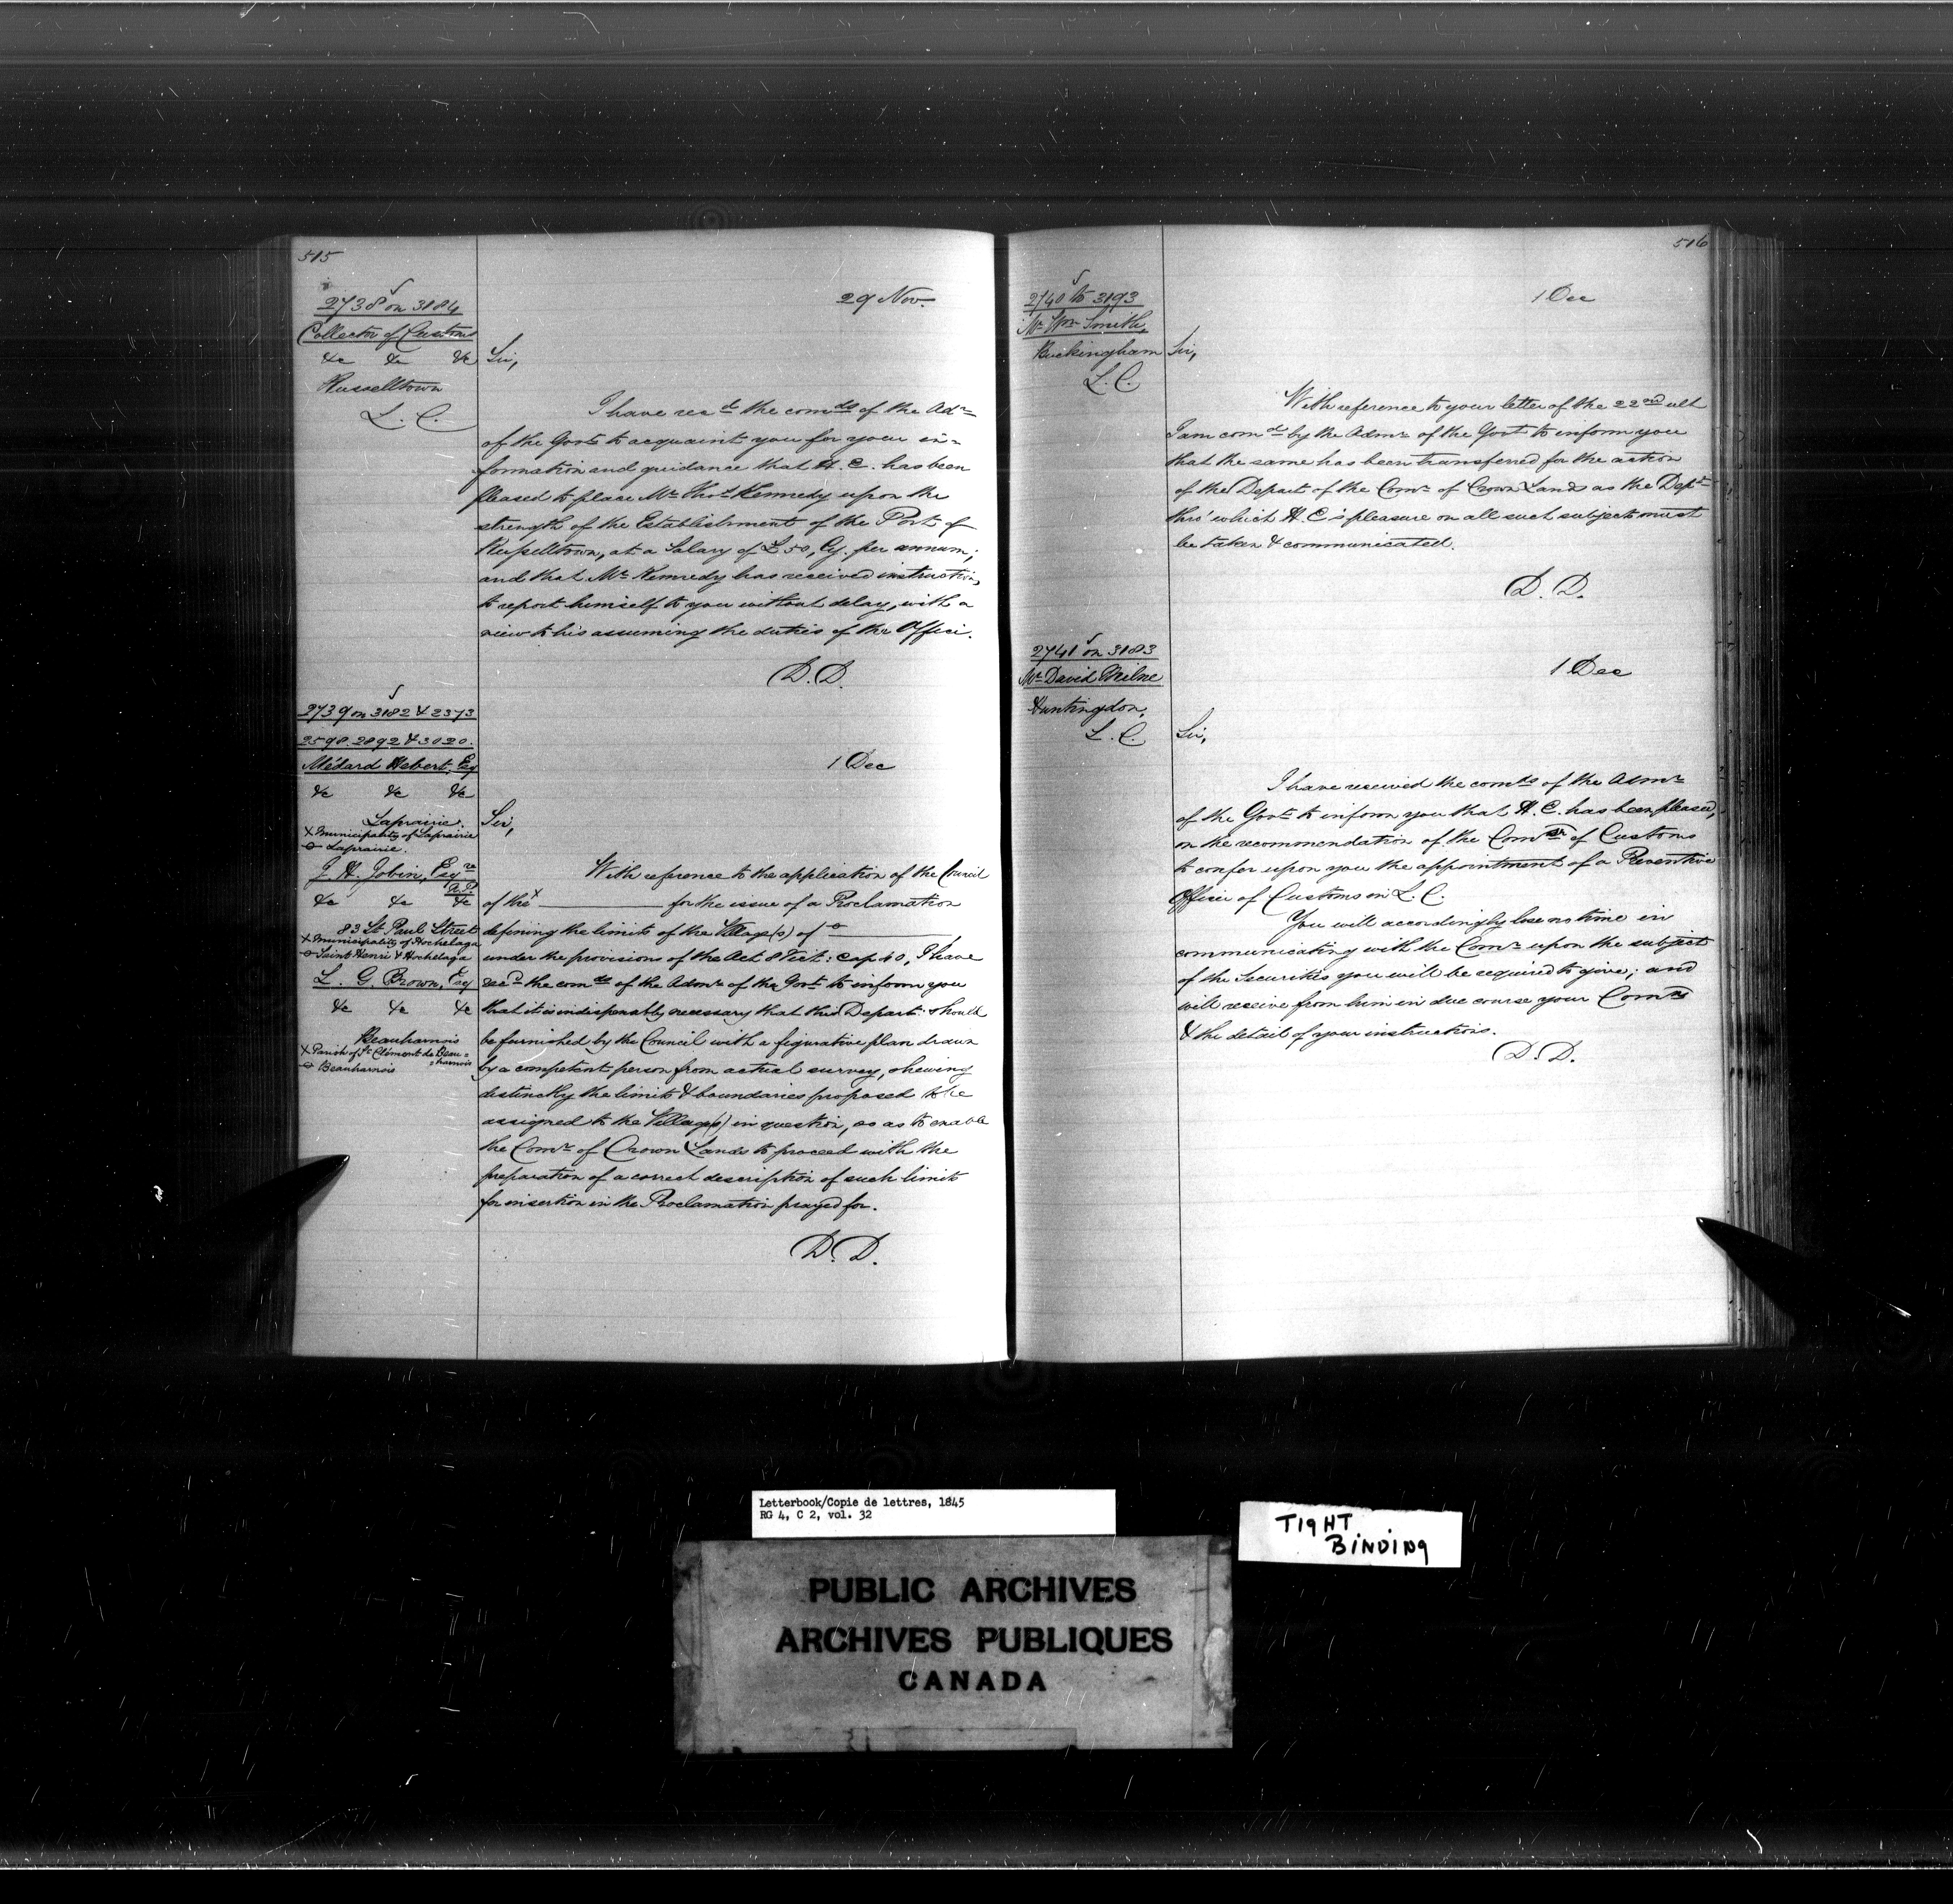 515
2738 on 3184
Collector of Customs
&c &c &c
Russelltown
L. C.
29 Nov.
Sir,
I have recd the comds of the Admr
of the Govt to acquaint you for your in-
formation and guidance that H. E. has been
pleased to place Mr Thos Kennedy upon the
strength of the Establishment of the Port of
Russelltown, at a Salary of £50, Cy. per annum;
and that Mr Kennedy has received instructions
to report himself to you without delay, with a
view to his assuming the duties of the Office.
D. D.
2739 on 3182 & 2373
2598. 2892 & 3020.
Médard Hebert, Esq
&c &c &c
Laprairie.
x Municipality of Laprairie
o Laprairie.
J. H. Jobin, Esqre
N.P.
&c &c &c
83 St Paul Street
x Municipality of Hochelaga
o Saint Henri & Hochelaga
L. G. Brown, Esq
&c &c &c
Beauharnois
x Parish of St Clément de Beau=
=harnois
o Beauharnois
1 Dec
Sir,
With reference to the application of the Council
of the x ________ for the issue of a Proclamation
defining the limits of the Village(s) of o ________
under the provision of the Act 8 Vict: Cap. 40, I have
recd the comds of the Admr of the Govt to inform you
that it is indispensably necessary that this Depart. should
be furnished by the Council with a figurative plan drawn
by a competent person from actual survey, shewing
distinctly the limits & boundaries proposed to be
assigned to the Village(s) in question, so as to enable
the Comr of Crown Lands to proceed with the
preparation of a correct description of such limits
for insertion in the Proclamation prayed for.
D. D.
516
2740 to 3193
Mr Wm Smith,
Buckingham
L. C.
1 Dec
Sir,
With reference to your letter of the 22nd ult
I am comd by the Admr of the Govt to inform you
that the same has been transferred for the action
of the Depart of the Comr of Crown Lands as the Dept
thro' which H. E's pleasure on all such subjects must
be taken & communicated.
D. D.
2741 on 3183
Mr David Milne
Huntingdon,
L. C.
1 Dec
Sir,
I have received the comds of the Admr
of the Govt to inform you that H. E. has been pleased,
on the recommendation of the Comr of Customs
to confer upon you the appointment of a Preventive
Officer of Customs in L. C.
You will accordingly lose no time in
communicating with the Comr upon the subject
of the Securities you will be required to give; and
will receive from him in due course your Comn
& the detail of your instructions.
D. D.
Letterbook/Copie de lettres, 1845
RG 4, C 2, vol. 32
TIGHT
BINDING
PUBLIC ARCHIVES
ARCHIVES PUBLIQUES
CANADA